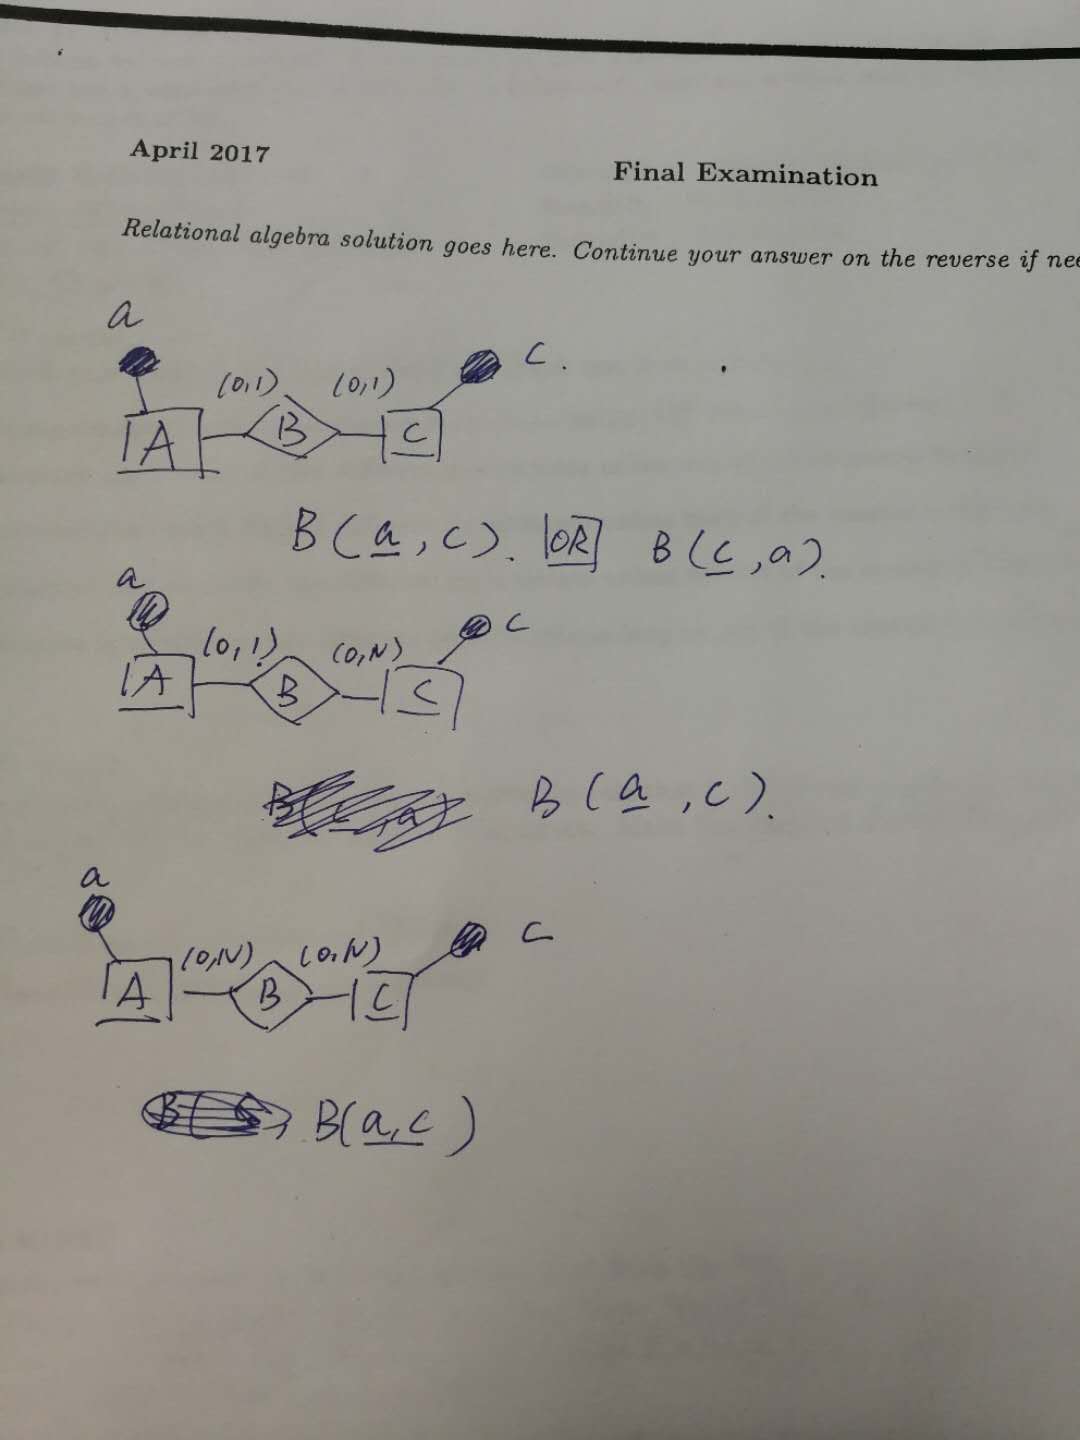 April 2017
Final Examination
Relational algebra solution goes here. Continue your answer on the reverse if
a
c.
(0,1) (0,1)
A B C
B(a, c). OR B(c, a).
a
c
(0,1) (0,N)
A B C
B(a, c).
a
c
(0,N) (0,N)
A B C
B(a, c)